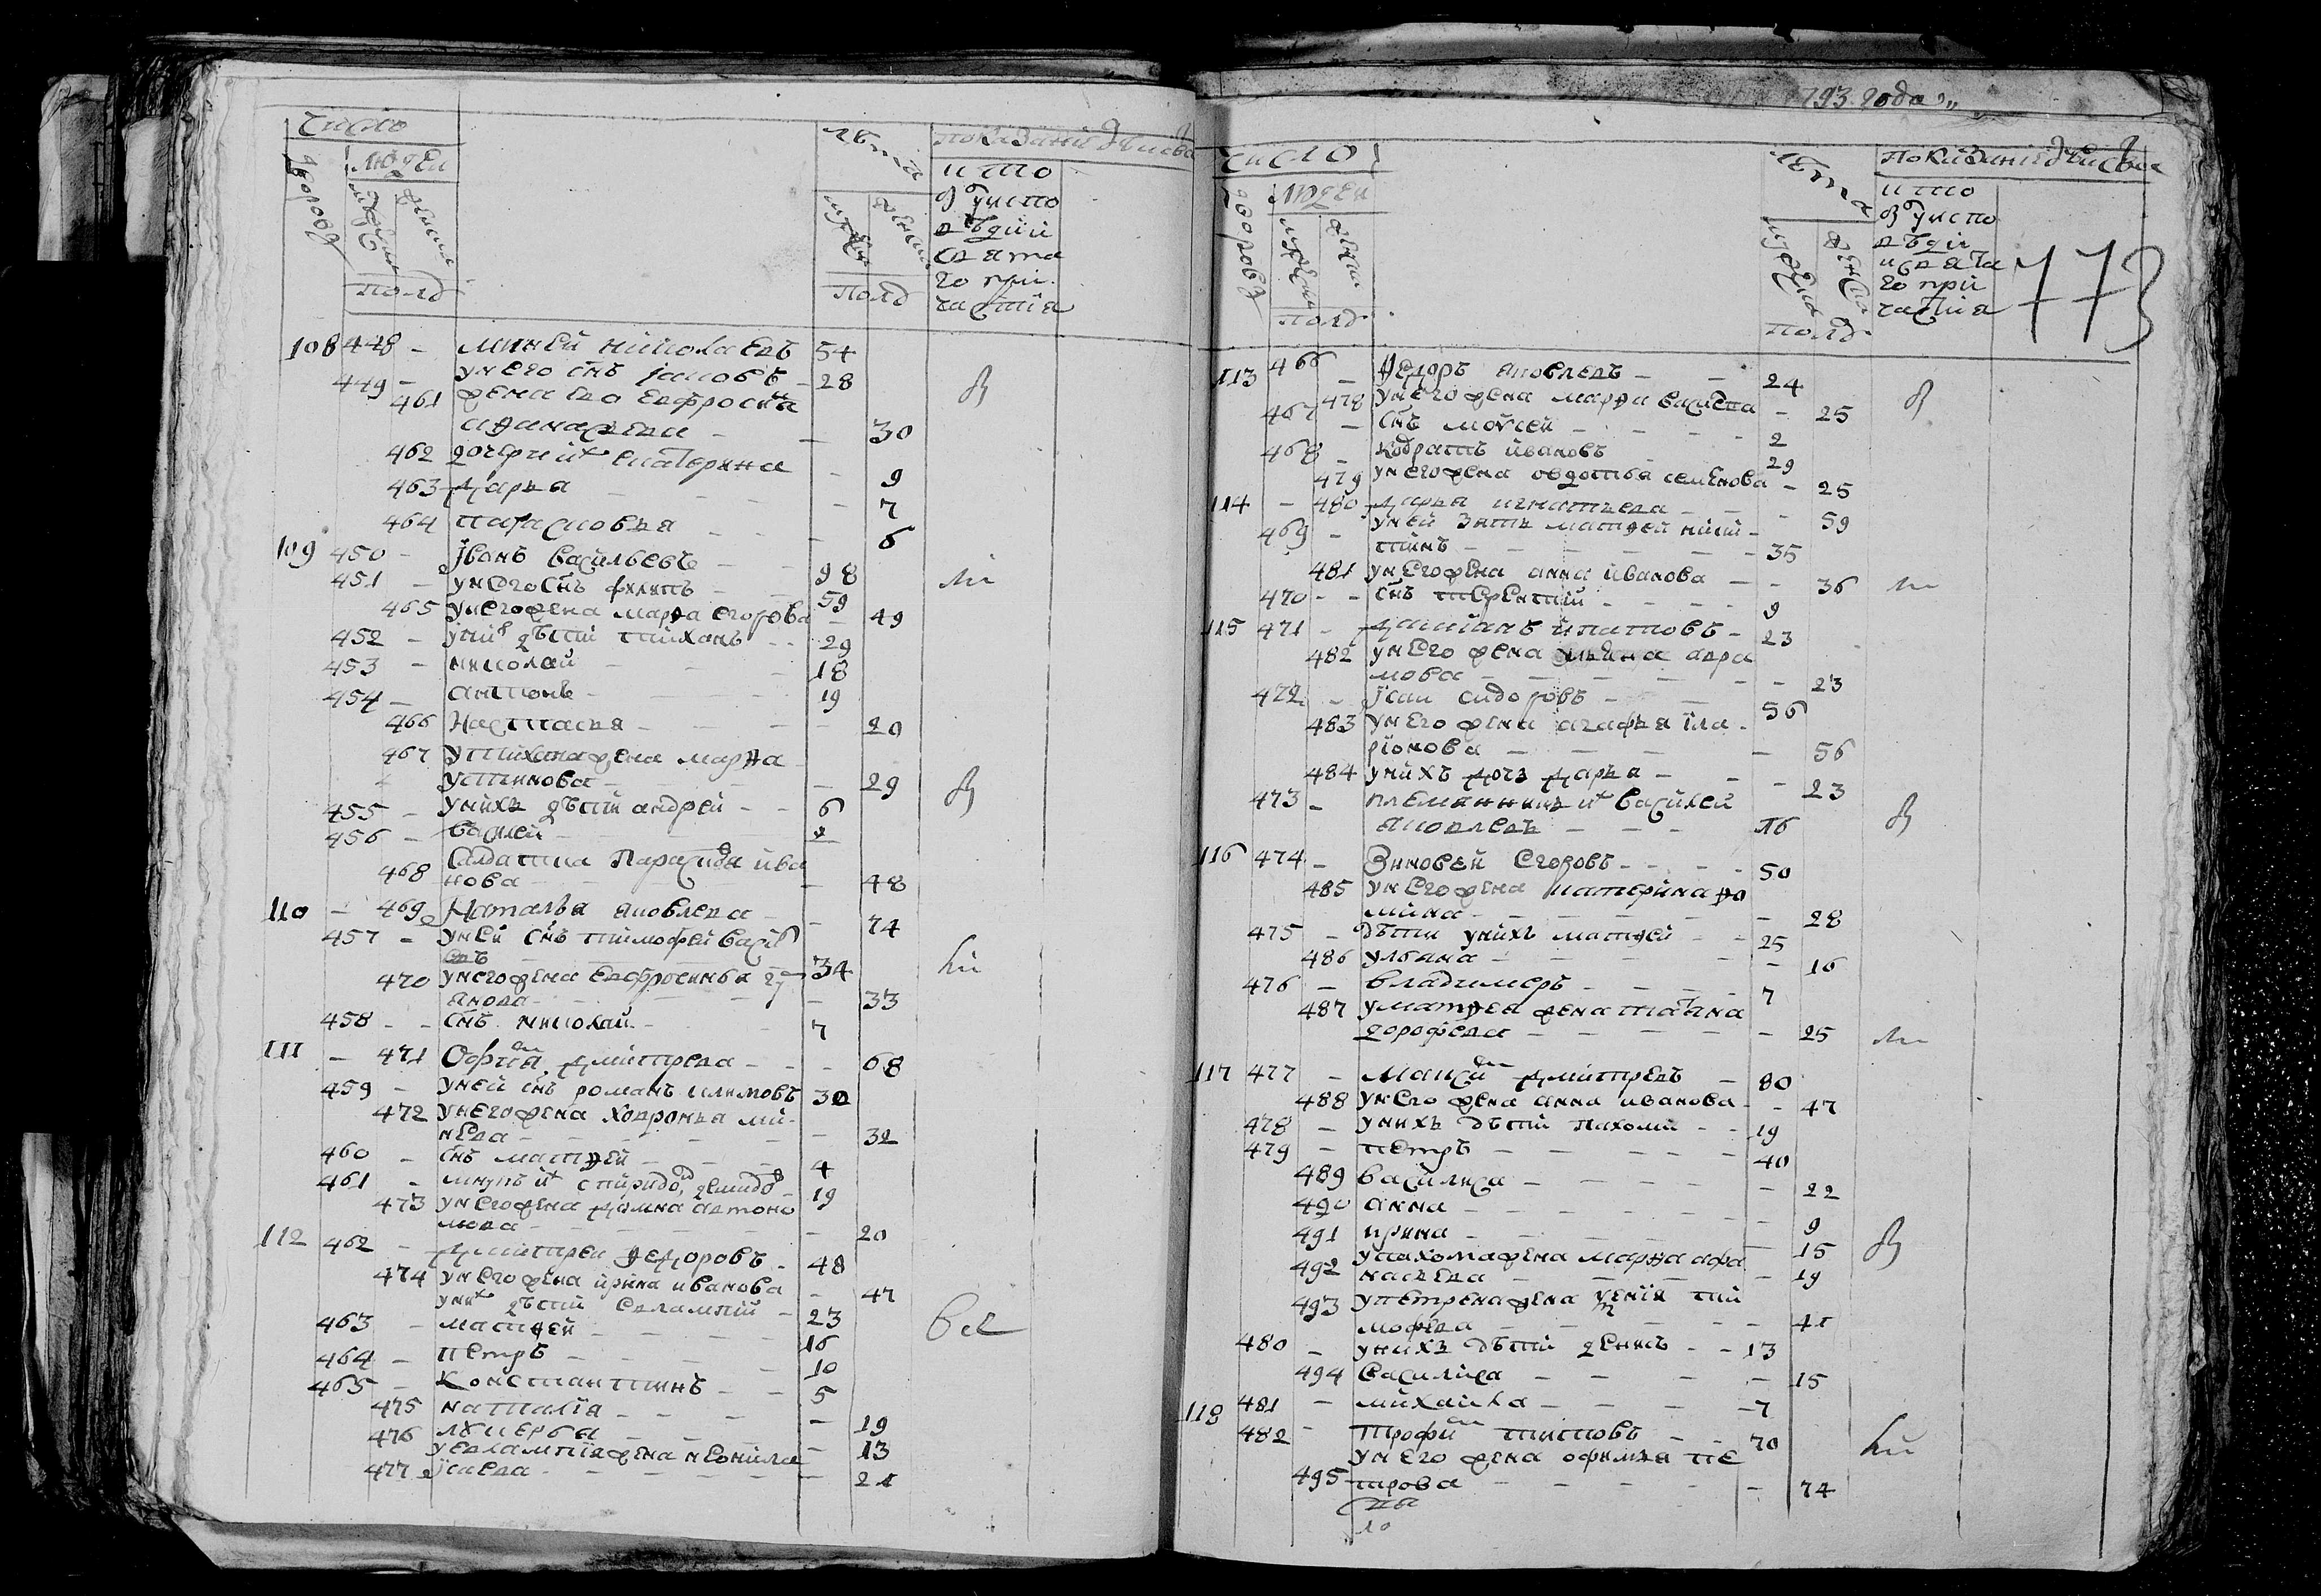 число
дворовъ
людей
мужеска
женска
полъ
лѣта
мужеска
женска
полъ
показаніе дѣйства
кто
былъ у испо
вѣди
свята
го при
частія
108 448 – миней николаевъ 54
449 – у него снъ іаковъ – 28
461 жена его евфросиніа
афанасьева – – 30
462 дочери их екатерина – 9
463 дарья – – – – 7
464 парасковья – – – – 6
109 450 – іванъ васильевъ – – 98
451 – у него снъ филипъ – – 59
465 у него жена марфа егорова – 49
452 – у них дѣти тихонъ – – 29
453 – николай – – – 18
454 – антонъ – – – 19
466 Настасья – – – – 20
467 у тихона жена марфа
устинова – – – – 29
455 – у нихъ дѣти андрей – – 6
456 – василей – – – 2
468 Салдатка Параскова ива
нова – – – – 48
110 – 469 Наталья яковлева – – 74
457 – у ней снъ тимофей василь
евъ – – – – 34
470 у него жена евфросинья
– – – – 33
458 – – снъ николай – – – 7
111 – 471 Офимя дмитрева – – – 68
459 – у ней снъ романъ климовъ 30
472 у него жена ховронья ми-
нева – – – – – – 32
460 – снъ матфей – – – 4
461 – внукъ их спиридо, демидо – 19
473 у него жена домна автоно
мова – – – – 20
112 462 – Дмитреи федоровъ – 48
474 у него жена ирина иванова – 47
у них дѣти евлампий – 23
463 – матфей – – – – 16
464 – петръ – – – – 10
465 – Константинъ – – 5
475 наталія – – – – – 19
476 лукерья – – – – 13
у евлампія жена неонила
477 ісаева – – – – – 21
1793 года
773
число
дворовъ
людей
мужеска
женска
полъ
лѣта
мужеска
женска
полъ
показаніе дѣйства
кто
былъ у испо
вѣди
и свята
го при
частія
113 466 – Федоръ яковлевъ – – 24
478 у него жена марфа василева – 25
467 – снъ моисей – – – – 2
468 – кодратъ ивановъ – 29
479 у него жена овдотья семенова – 25
114 – 480 дарья игнатьева – – – 59
469 – у ней зять матфей ники-
тинъ – – – – – – 35
481 у него жена анна иванова – – 36
470 – – снъ терентий – – – – 9
115 471 – дамианъ ипатовъ – 23
482 у него жена ульяна авра
мова – – – – – – 23
472 – ісаи сидоровъ – – – 56
483 у него жена агафья ила-
рионова – – – – – 56
484 у нихъ дочь дарья – – – 23
473 – племянникъ их василей
яковлевъ – – – 16
116 474 – Зиновей Егоровъ – – – – 50
485 у него жена катерина фо
мина – – – – – – 28
475 – дѣти у нихъ матфей – – 25
486 ульяна – – – – – – 16
476 – владимеръ – – – – 7
487 у матфея жена татьяна
дорофеева – – – – – – 25
117 477 – Максим дмитревъ – 80
488 у него жена анна иванова – – 47
478 – у нихъ дѣти пахоми – – 19
479 – петръ – – – – – – 40
489 василиса – – – – – – 22
490 анна – – – – – – – 9
491 ирина – – – – – 15
492 у пахома жена марфа афа
насьева – – – – – 19
493 у петра жена ксения ти
мофеева – – – – – 41
480 – у нихъ дѣти денисъ – – 13
494 Василиса – – – – – 15
481 – михаила – – – – 7
118 482 – трофим титовъ – – 70
у него жена офимья пе
495 трова – – – – – 74